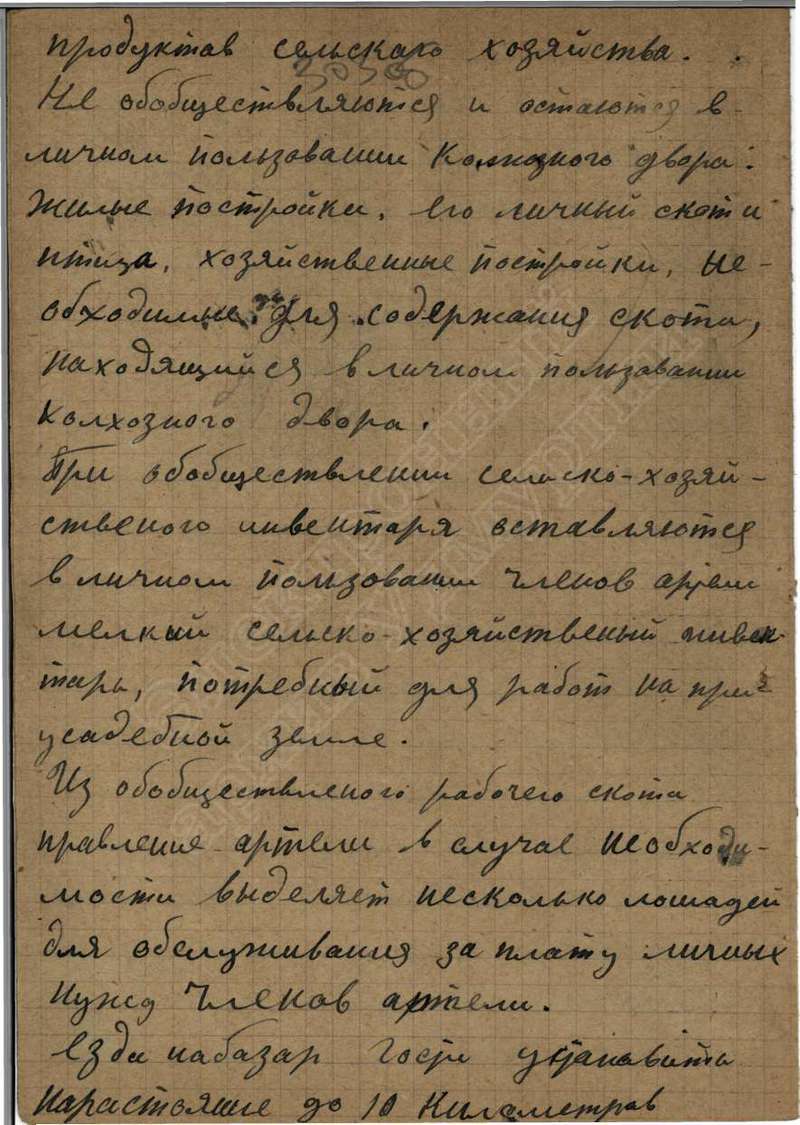 продуктав сельскаго хозяйства.
30300
Не обобществляются и остаются в
личном пользовании Колхозного двора:
жилые постройки, его личный скот и
птица, хозяйственные постройки, не-
обходимые для содержания скота,
находящийся в личном пользовании
колхозного двора.
При обобществлении сельско-хозяй-
ственого инвентаря оставляются
в личном пользовании членов артели
мелкий сельско-хозяйственый инвен-
тарь, потребный для работ на при-
усадебной земле.
Из обобществленого рабочего скота
правление артели в случае необходи-
мости выделяет несколько лошадей
для обслуживания за плату личных
нужд членов артели.
Езда на базар гости установить
на растояние до 10 Километров